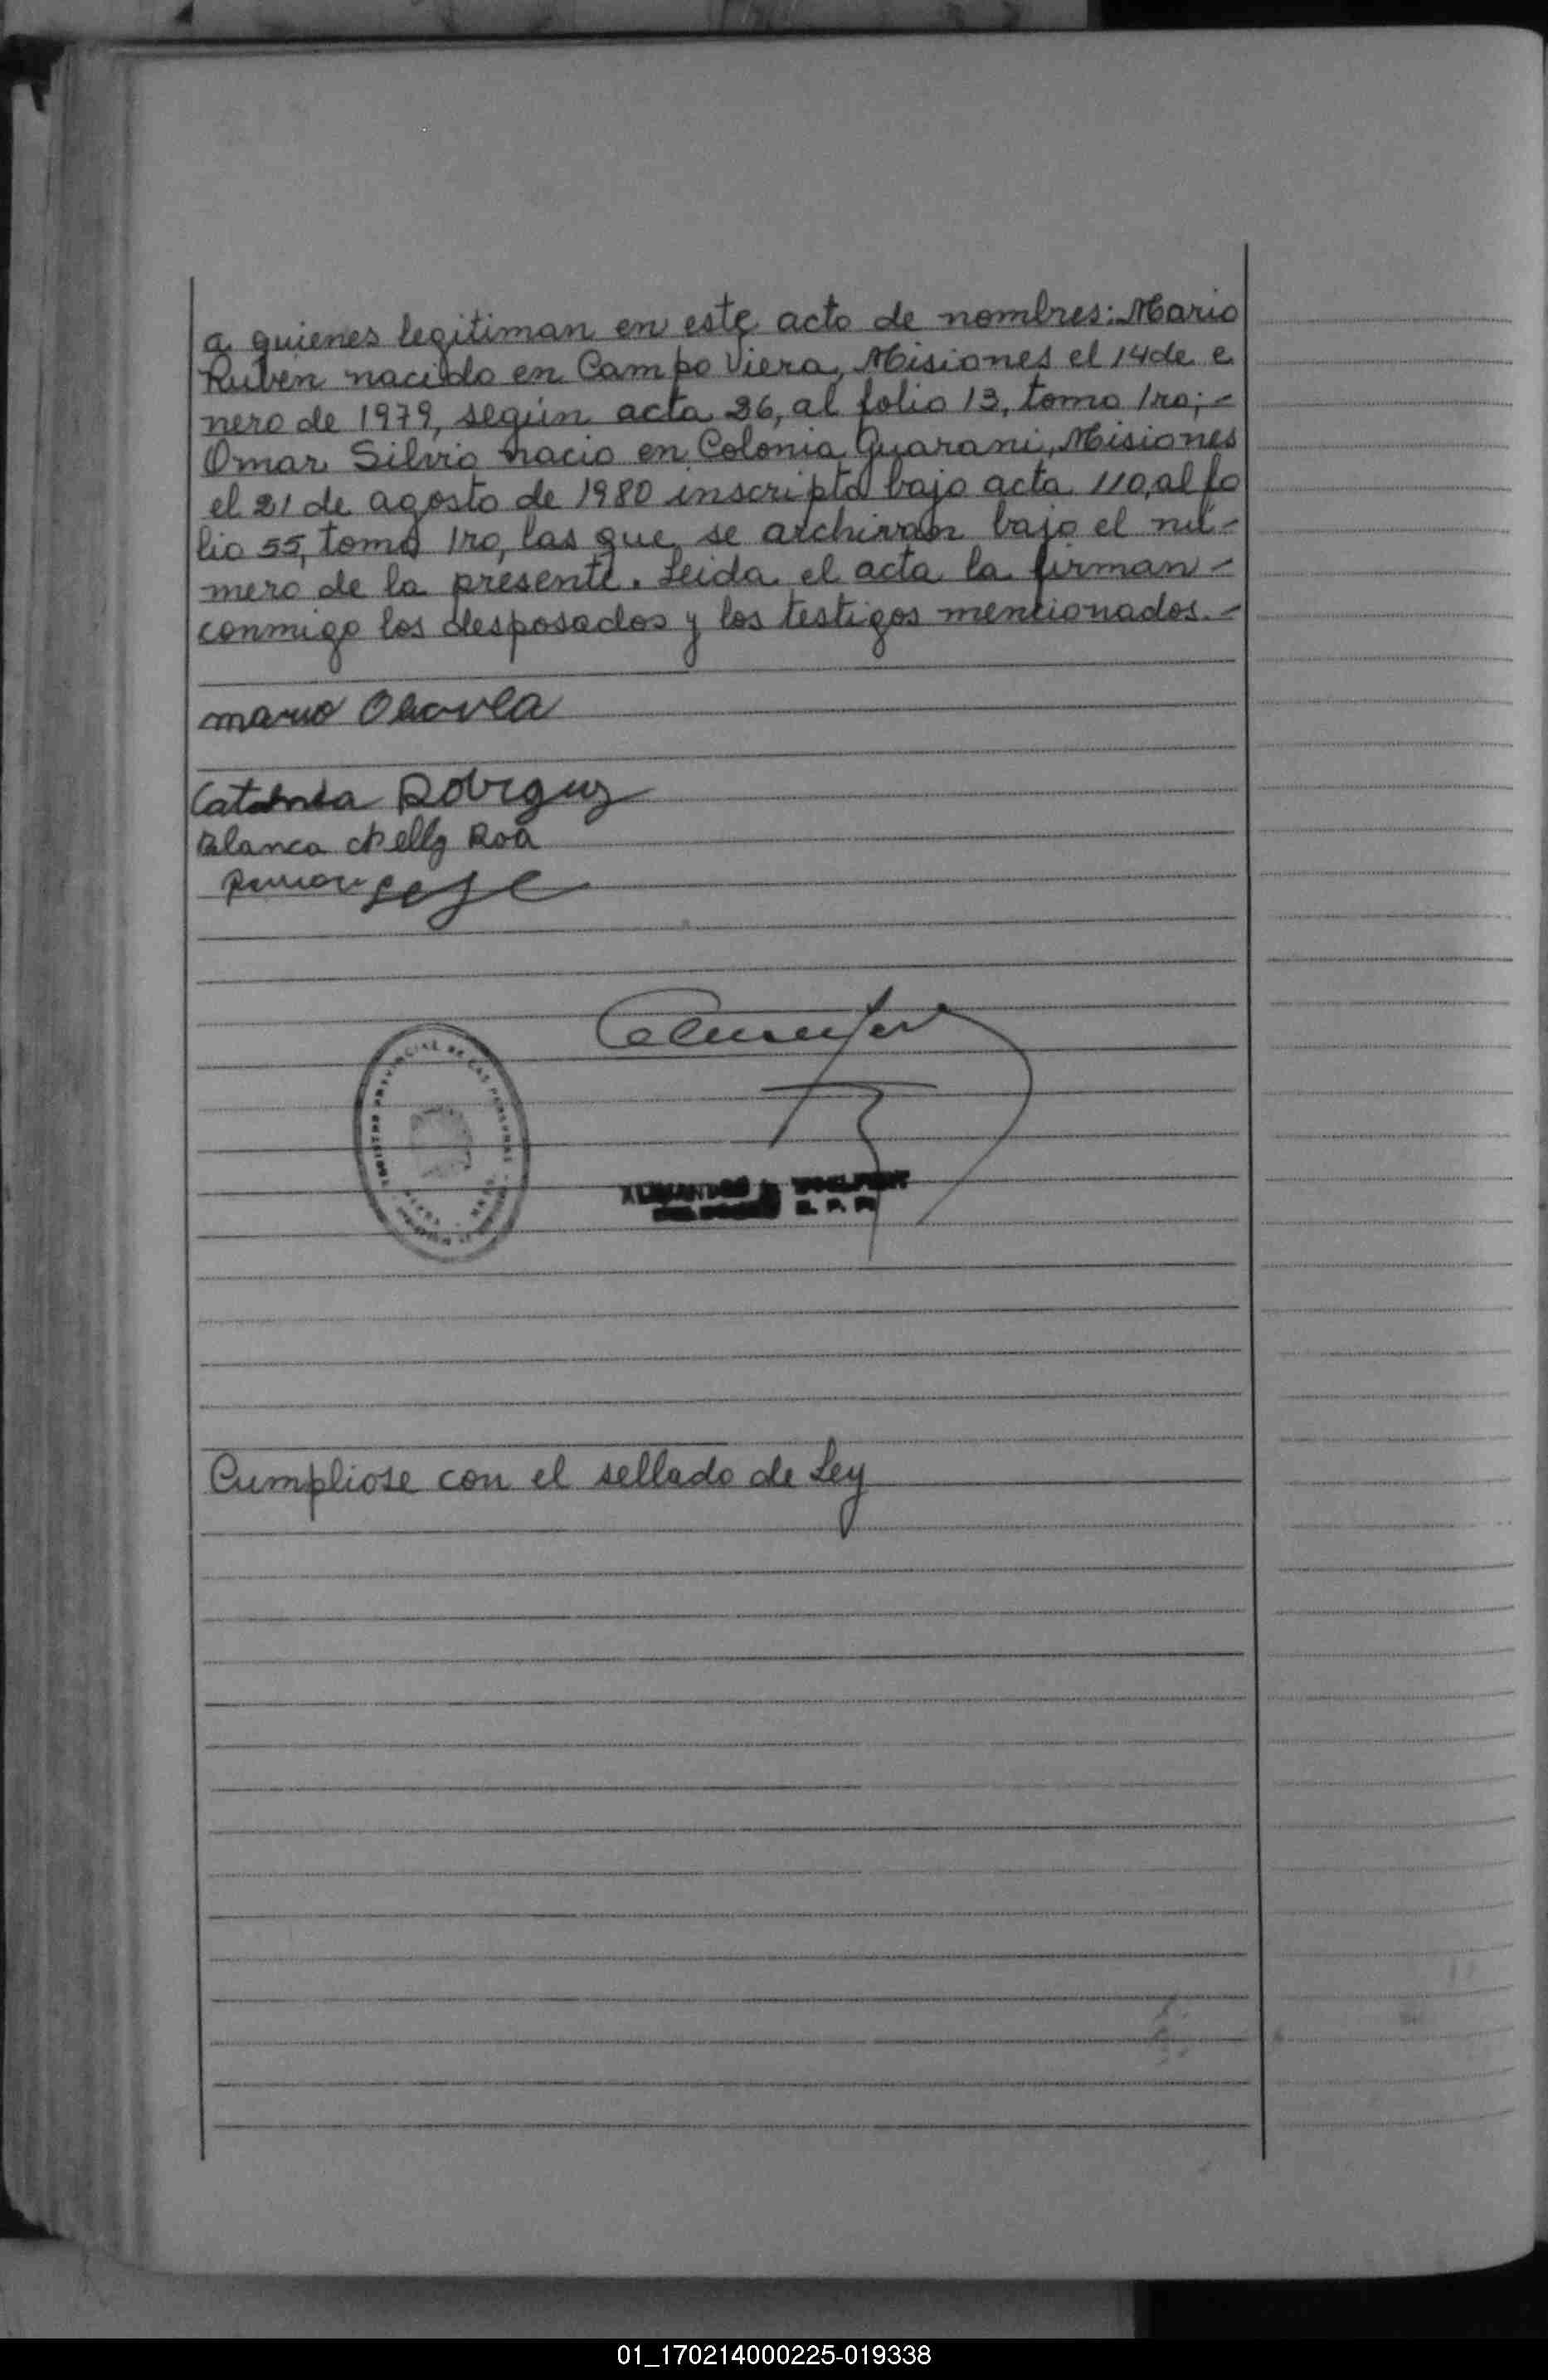 a quienes legitiman en este acto de nombres: Mario
Rubén nacido en Campo Viera, Misiones el 14 de e
nero de 1979, según acta 26, al folio 13, tomo 1ro; -
Omar Silvio nacio en Colonia Guarani, Misiones
el 21 de agosto de 1980 inscripto bajo acta 110, al fo
lio 55, tomo 1ro, las que se archivan bajo el nú-
mero de la presente. Leida el acta la firman -
conmigo los desposados y los testigos mencionados. -
mario
Blanca Nelly Roa
Ramon
PROVINCIAL DE LAS PERSONAS
R. P. P.
Cumpliose con el sellado de Ley
01_170214000225-019338